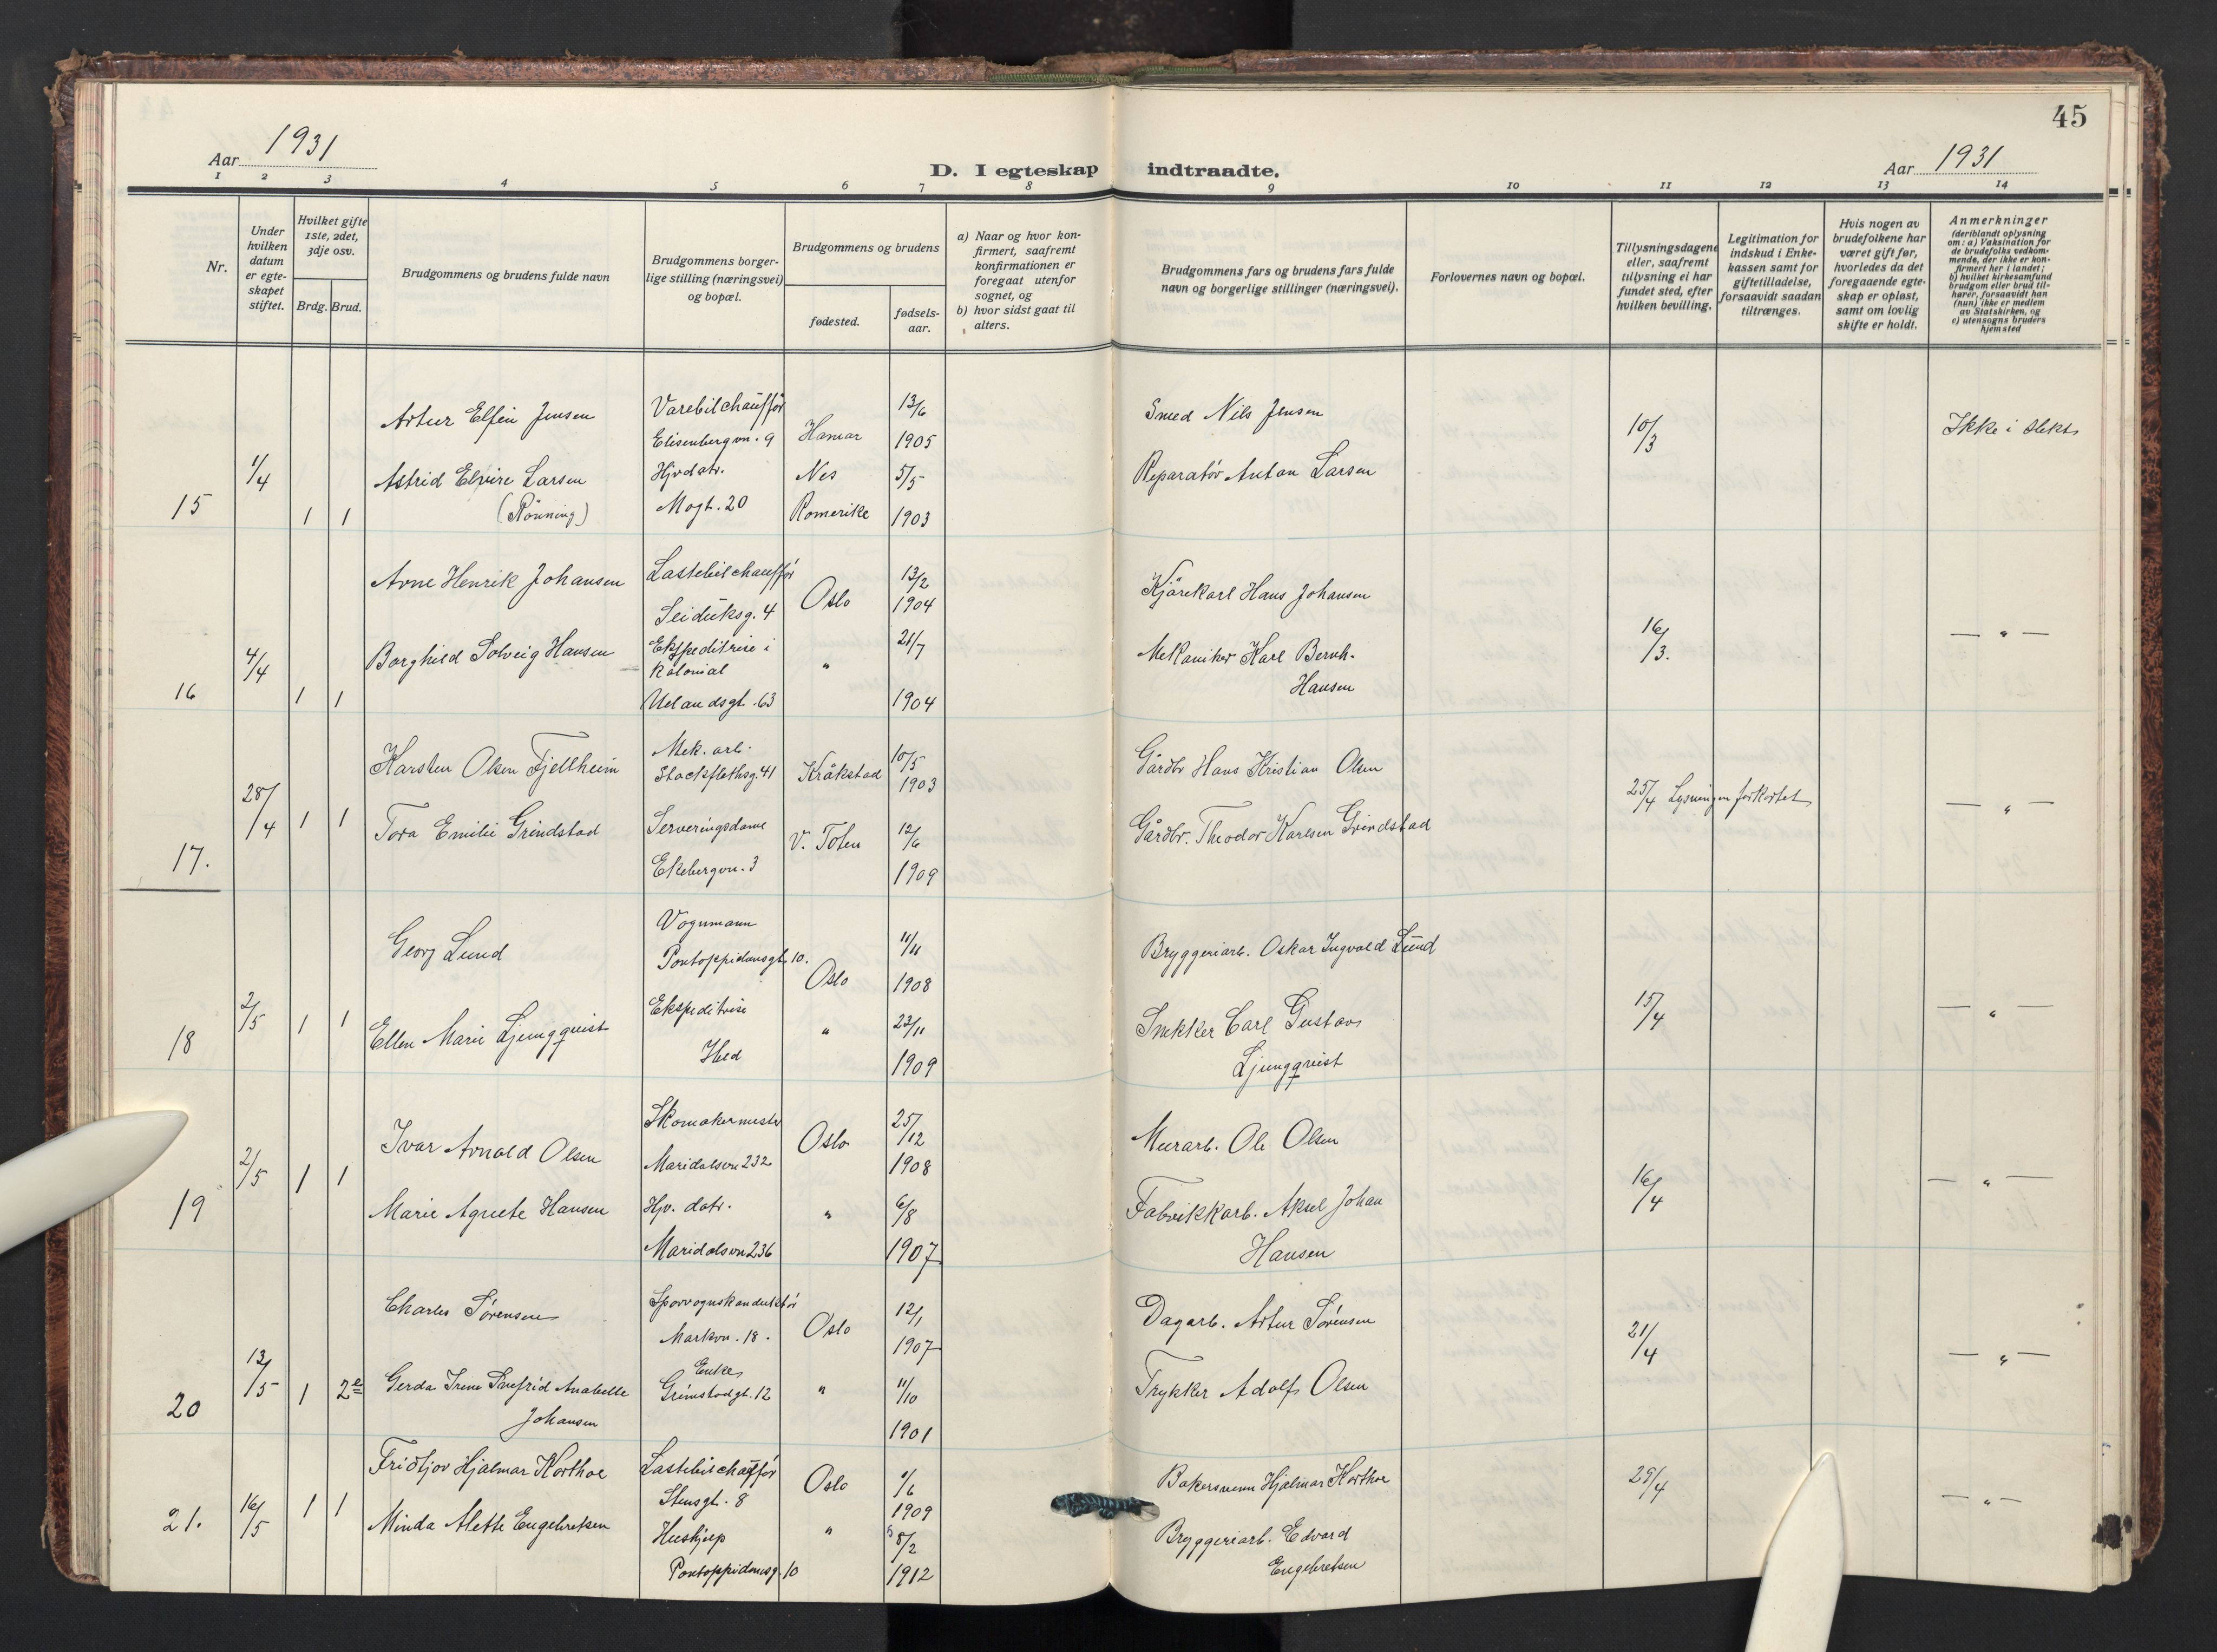 45
Aar 1931
D. I egteskap indtraadte.
Aar 1931
1 2 3 4 5 6 7 8 9 10 11 12 13 14
Nr.
Under
hvilken
datum
er egte-
skapet
stiftet.
Hvilket gifte
1ste, 2det,
3dje osv.
Brdg. Brud.
Brudgommens og brudens fulde navn
Brudgommens borger-
lige stilling (næringsvei)
og bopæl.
Brudgommens og brudens
fødested.
fødsels-
aar.
a) Naar og hvor kon-
firmert, saafremt
konfirmationen er
foregaat utenfor
sognet, og
b) hvor sidst gaat til
alters.
Brudgommens fars og brudens fars fulde
navn og borgerlige stillinger (næringsvei).
Forlovernes navn og bopæl.
Tillysningsdagene
eller, saafremt
tillysning ei har
fundet sted, efter
hvilken bevilling.
Legitimation for
indskud i Enke-
kassen samt for
giftetilladelse,
forsaavidt saadan
tiltrænges.
Hvis nogen av
brudefolkene har
været gift før,
hvorledes da det
foregaaende egte-
skap er opløst,
samt om lovlig
skifte er holdt.
Anmerkninger
(deriblandt oplysning
om: a) Vaksination for
de brudefolks vedkom-
mende, der ikke er kon-
firmert her i landet;
b) hvilket kirkesamfund
brudgom eller brud til-
hører, forsaavidt han
(hun) ikke er medlem
av Statskirken, og
c) utensogns bruders
hjemsted
15
1/4
1 1
Artur Elfin Jensen
Astrid Elvire Larsen
(Rønning)
Varebilchauffør
Elisenbergvn. 9
Hjvdatr.
Mogt. 20
Hamar
Nes
Romerike
13/6
1905
5/5
1903
Smed Nils Jensen
Reparatør Anton Larsen
10/3
Ikke i slekt
16
4/4
1 1
Arne Henrik Johansen
Borghild Solveig Hansen
Lastebilchauffør
Seiduksg. 4
Ekspeditrise i
kolonial
Uelandsgt. 63
Oslo
"
13/2
1904
21/7
1904
Kjørekarl Hans Johansen
Mekaniker Karl Bernh.
Hansen
16/3.
— " —
17.
28/4
1 1
Karsten Olsen Fjellheim
Tora Emilie Grindstad
Mek. arb.
Stockflethsg. 41
Serveringsdame
Ekebergvn. 3
Kråkstad
V. Toten
10/5
1903
12/6
1909
Gårdbr Hans Kristian Olsen
Gårdbr. Theodor Karlsen Grindstad
25/4 Lysningen forkortet
— " —
18
2/5
1 1
Georg Lund
Ellen Marie Ljungqquist
Vognmann
Pontoppidansgt. 10.
Ekspeditrise
Ibid
Oslo
"
11/11
1908
23/11
1909
Bryggeriarb. Oskar Ingvald Lund
Snekker Carl Gustav
Ljungqquist
15/4
— " —
19
2/5
1 1
Ivar Arnold Olsen
Marie Agnete Hansen
Skomakermester
Maridalsvn 232
Hjv. datr.
Maridalsvn 236
Oslo
"
25/12
1908
6/8
1907
Murarb. Ole Olsen
Fabrikkarb. Aksel Johan
Hansen
16/4
— " —
20
13/5
1 2e
Charles Sørensen
Gerda Irene Anabelle
Johansen
Sporvognskonduktør
Markvn. 18.
Enke
Grimstadgt. 12
Oslo
"
12/1
1907
11/10
1901
Dagarb. Artur Sørensen
Trykker Adolf Olsen
21/4
— " —
21.
16/5
1 1
Fridtjov Hjalmar Korthoe
Minda Alette Engebretsen
Lastebilchauffør
Stensgt. 8
Hushjelp
Pontoppidansg. 10
Oslo
"
1/6
1909
8/2
1912
Bakersvenn Hjalmar Korthoe
Bryggeriarb. Edvard
Engebretsen
29/4
— " —